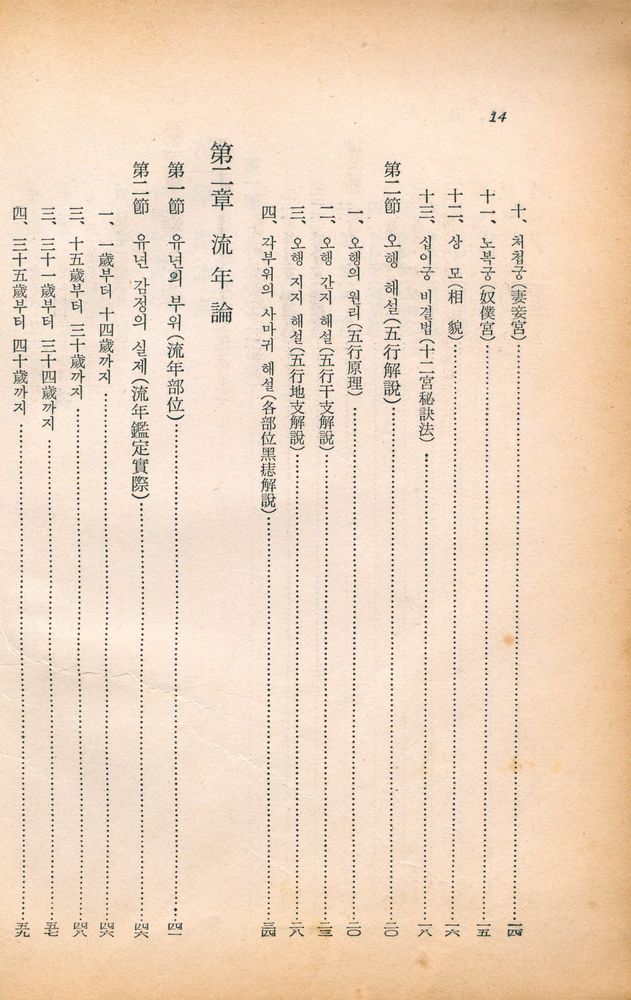 14
十、처첩궁(妻妾宮)……一四
十一、노복궁(奴僕宮)……一五
十二、상 모(相 貌)……一六
十三、십이궁 비결법(十二宮秘訣法)……一八
第二節 오행 해설(五行解說)……二〇
一、오행의 원리(五行原理)……二〇
二、오행 간지 해설(五行干支解說)……二三
三、오행 지지 해설(五行地支解說)……二八
四、각부위의 사마귀 해설(各部位黑痣解說)……三四
第二章 流年論
第一節 유년의 부위(流年部位)……四一
第二節 유년 감정의 실제(流年鑑定實際)……四六
一、一歲부터 十四歲까지……四六
三、十五歲부터 三十歲까지……四八
三、三十一歲부터 三十四歲까지……五七
四、三十五歲부터 四十歲까지……五九